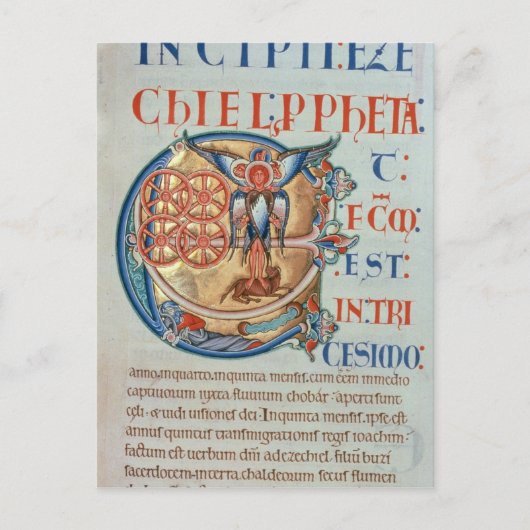 INCYPIT: EZE
CHIEL; PPHETA:
ET:
FC̄M:
EST:
IN: TRI
CESIMO:
anno. inquarto. inquinta mensis. cum eēm inmedio
captiuorum iuxta fluuium chobár: aperti sunt
celi. & uidi uisiones dei: Inquinta mensis. ipse est
annus quincus transmigrationis regis ioachim:
factum est uerbum dn̄i adezechiel. filiū buzi
sacerdotem. interra. chaldeorum secus flumen